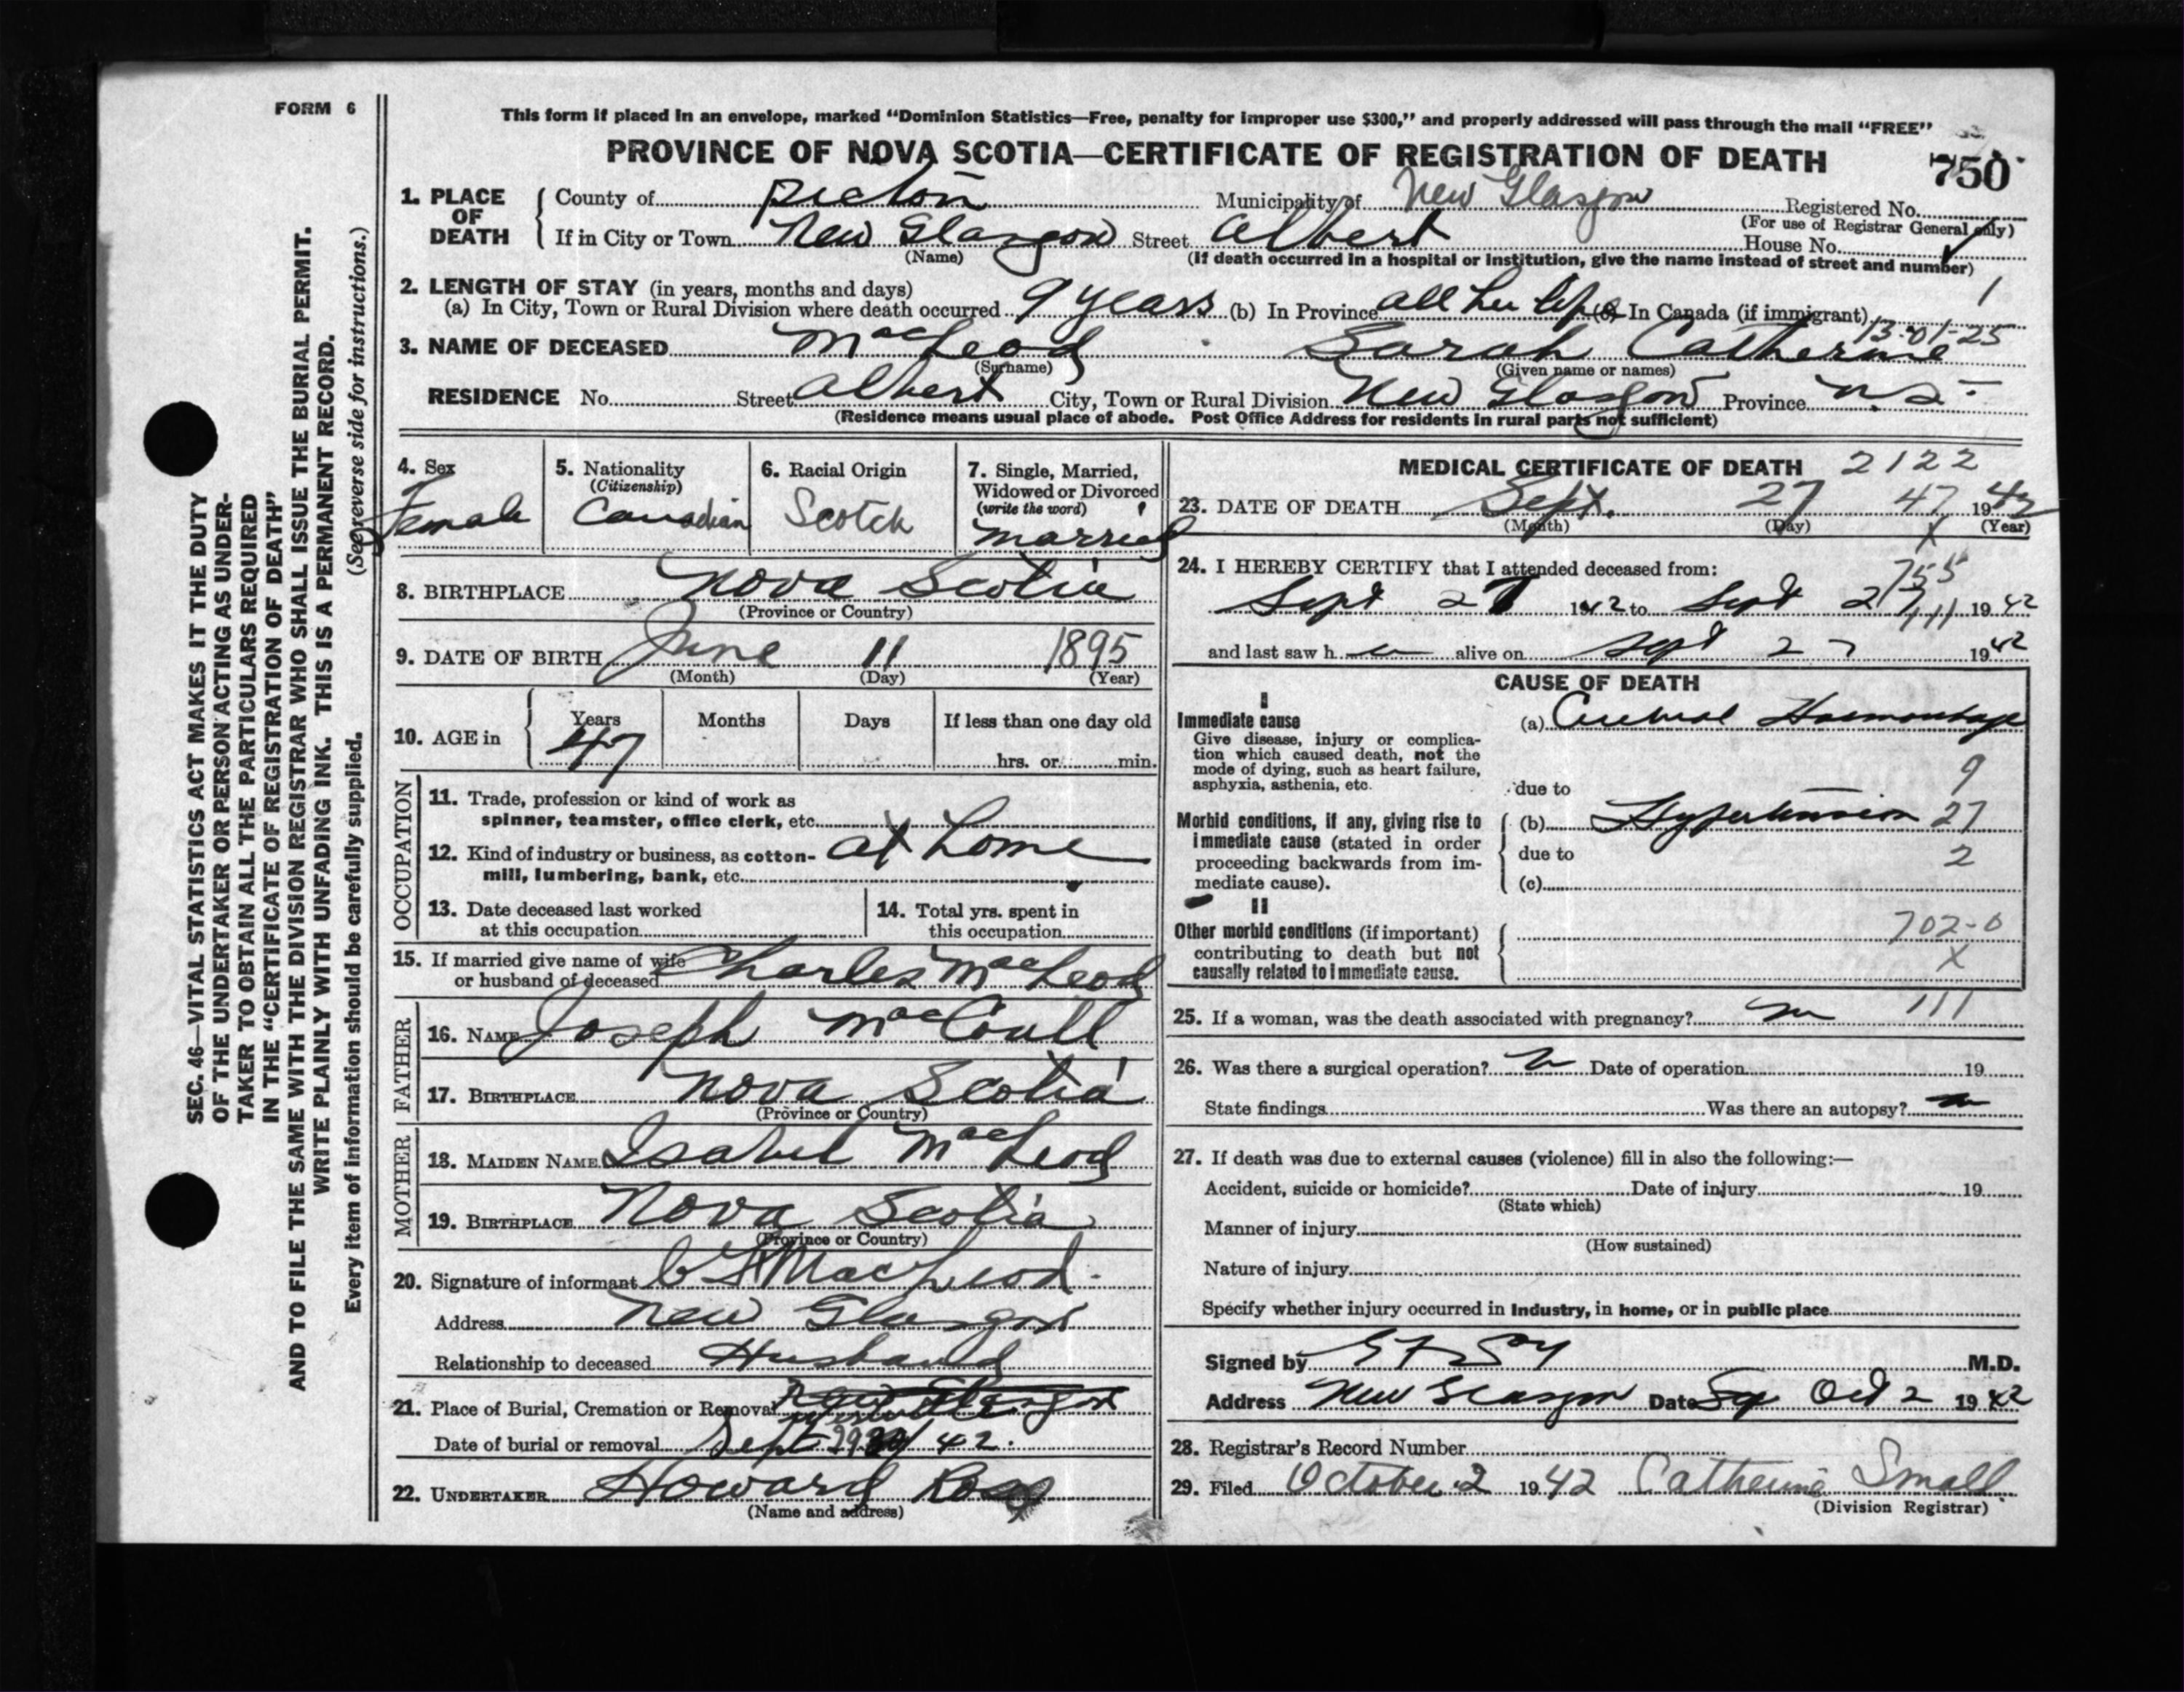 FORM 6
This form if placed in an envelope, marked "Dominion Statistics—Free, penalty for improper use $300," and properly addressed will pass through the mail "FREE"
PROVINCE OF NOVA SCOTIA—CERTIFICATE OF REGISTRATION OF DEATH
750
1. PLACE OF DEATH
County of Pictou Municipality of New Glasgow Registered No.
(For use of Registrar General only)
If in City or Town New Glasgow Street Albert House No.
(Name) (If death occurred in a hospital or institution, give the name instead of street and number)
2. LENGTH OF STAY (in years, months and days)
1
(a) In City, Town or Rural Division where death occurred 9 years (b) In Province all her life (c) In Canada (if immigrant)
13-01-25
3. NAME OF DECEASED MacLeod Sarah Catherine
(Surname) (Given name or names)
RESIDENCE No. Street Albert City, Town or Rural Division New Glasgow Province N.S.
(Residence means usual place of abode. Post Office Address for residents in rural parts not sufficient)
4. Sex
Female
5. Nationality
(Citizenship)
Canadian
6. Racial Origin
Scotch
7. Single, Married,
Widowed or Divorced
(write the word)
married
8. BIRTHPLACE Nova Scotia
(Province or Country)
9. DATE OF BIRTH June 11 1895
(Month) (Day) (Year)
10. AGE in Years Months Days If less than one day old
47 hrs. or min.
OCCUPATION
11. Trade, profession or kind of work as
spinner, teamster, office clerk, etc.
12. Kind of industry or business, as cotton- at home
mill, lumbering, bank, etc.
13. Date deceased last worked
at this occupation
14. Total yrs. spent in
this occupation
15. If married give name of wife
or husband of deceased Charles MacLeod
FATHER
16. NAME Joseph MacCoull
17. BIRTHPLACE Nova Scotia
(Province or Country)
MOTHER
18. MAIDEN NAME Isabel MacLeod
19. BIRTHPLACE Nova Scotia
(Province or Country)
20. Signature of informant MacLeod
Address New Glasgow
Relationship to deceased Husband
21. Place of Burial, Cremation or Removal New Glasgow
Date of burial or removal Sept 42.
22. UNDERTAKER Howard Ross
(Name and address)
MEDICAL CERTIFICATE OF DEATH 2122
23. DATE OF DEATH Sept. 27 47 1942
(Month) (Day) X (Year)
24. I HEREBY CERTIFY that I attended deceased from:
755
Sept 27 1942 to Sept 27 1942
111
and last saw h er alive on Sept 27 1942
CAUSE OF DEATH
I
Immediate cause
Give disease, injury or complica-
tion which caused death, not the
mode of dying, such as heart failure,
asphyxia, asthenia, etc.
(a) Cerebral Haemorrhage
9
due to
Morbid conditions, if any, giving rise to
immediate cause (stated in order
proceeding backwards from im-
mediate cause).
(b) Hypertension 27
due to 2
(c)
II
Other morbid conditions (if important)
contributing to death but not
causally related to immediate cause.
702-0
X
25. If a woman, was the death associated with pregnancy? no 111
26. Was there a surgical operation? no Date of operation 19
State findings Was there an autopsy? no
27. If death was due to external causes (violence) fill in also the following:—
Accident, suicide or homicide? Date of injury 19
(State which)
Manner of injury
(How sustained)
Nature of injury
Specify whether injury occurred in industry, in home, or in public place
Signed by M.D.
Address New Glasgow Date Oct 2 1942
28. Registrar's Record Number
29. Filed October 2 1942 Catherine Small
(Division Registrar)
SEC. 46—VITAL STATISTICS ACT MAKES IT THE DUTY
OF THE UNDERTAKER OR PERSON ACTING AS UNDER-
TAKER TO OBTAIN ALL THE PARTICULARS REQUIRED
IN THE "CERTIFICATE OF REGISTRATION OF DEATH"
AND TO FILE THE SAME WITH THE DIVISION REGISTRAR WHO SHALL ISSUE THE BURIAL PERMIT.
WRITE PLAINLY WITH UNFADING INK. THIS IS A PERMANENT RECORD.
Every item of information should be carefully supplied. (See reverse side for instructions.)